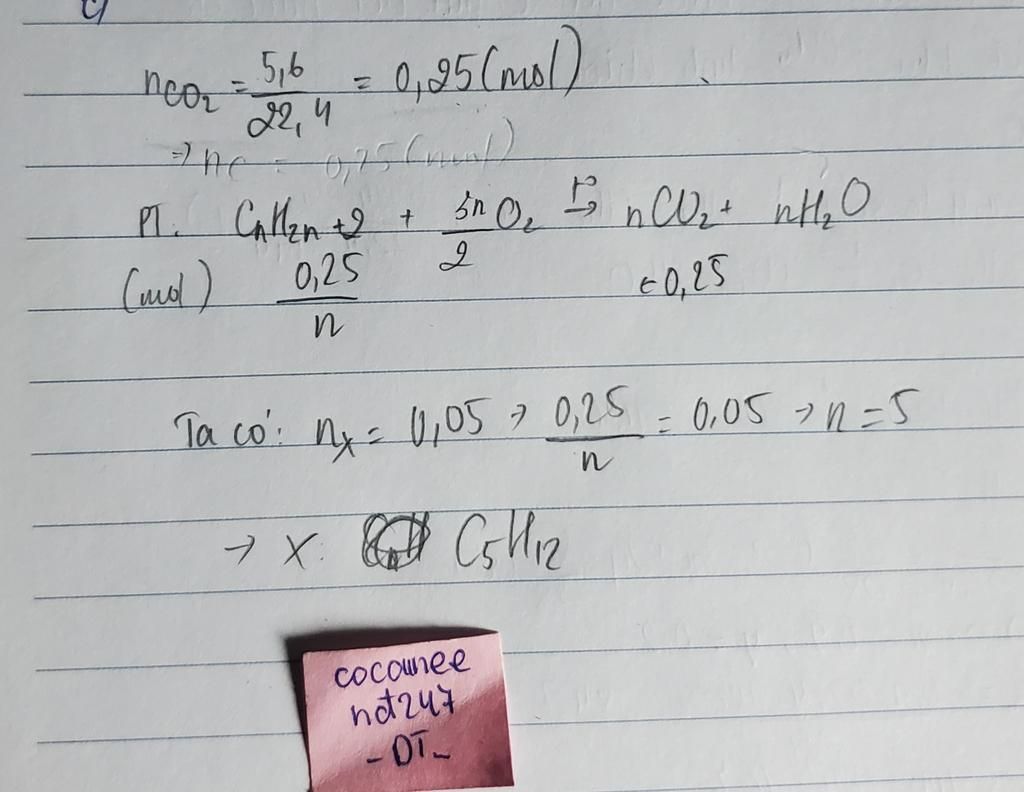 c)
nCO₂ = 5,6/22,4 = 0,25 (mol)
⇒ nC = 0,25 (mol)
PT. CnH2n+2 + 3n/2 O₂ t°→ nCO₂ + nH₂O
(mol) 0,25/n ← 0,25
Ta có: nx = 0,05 → 0,25/n = 0,05 → n = 5
→ X: C₅H₁₂
cocounee
hdt247
-DT-